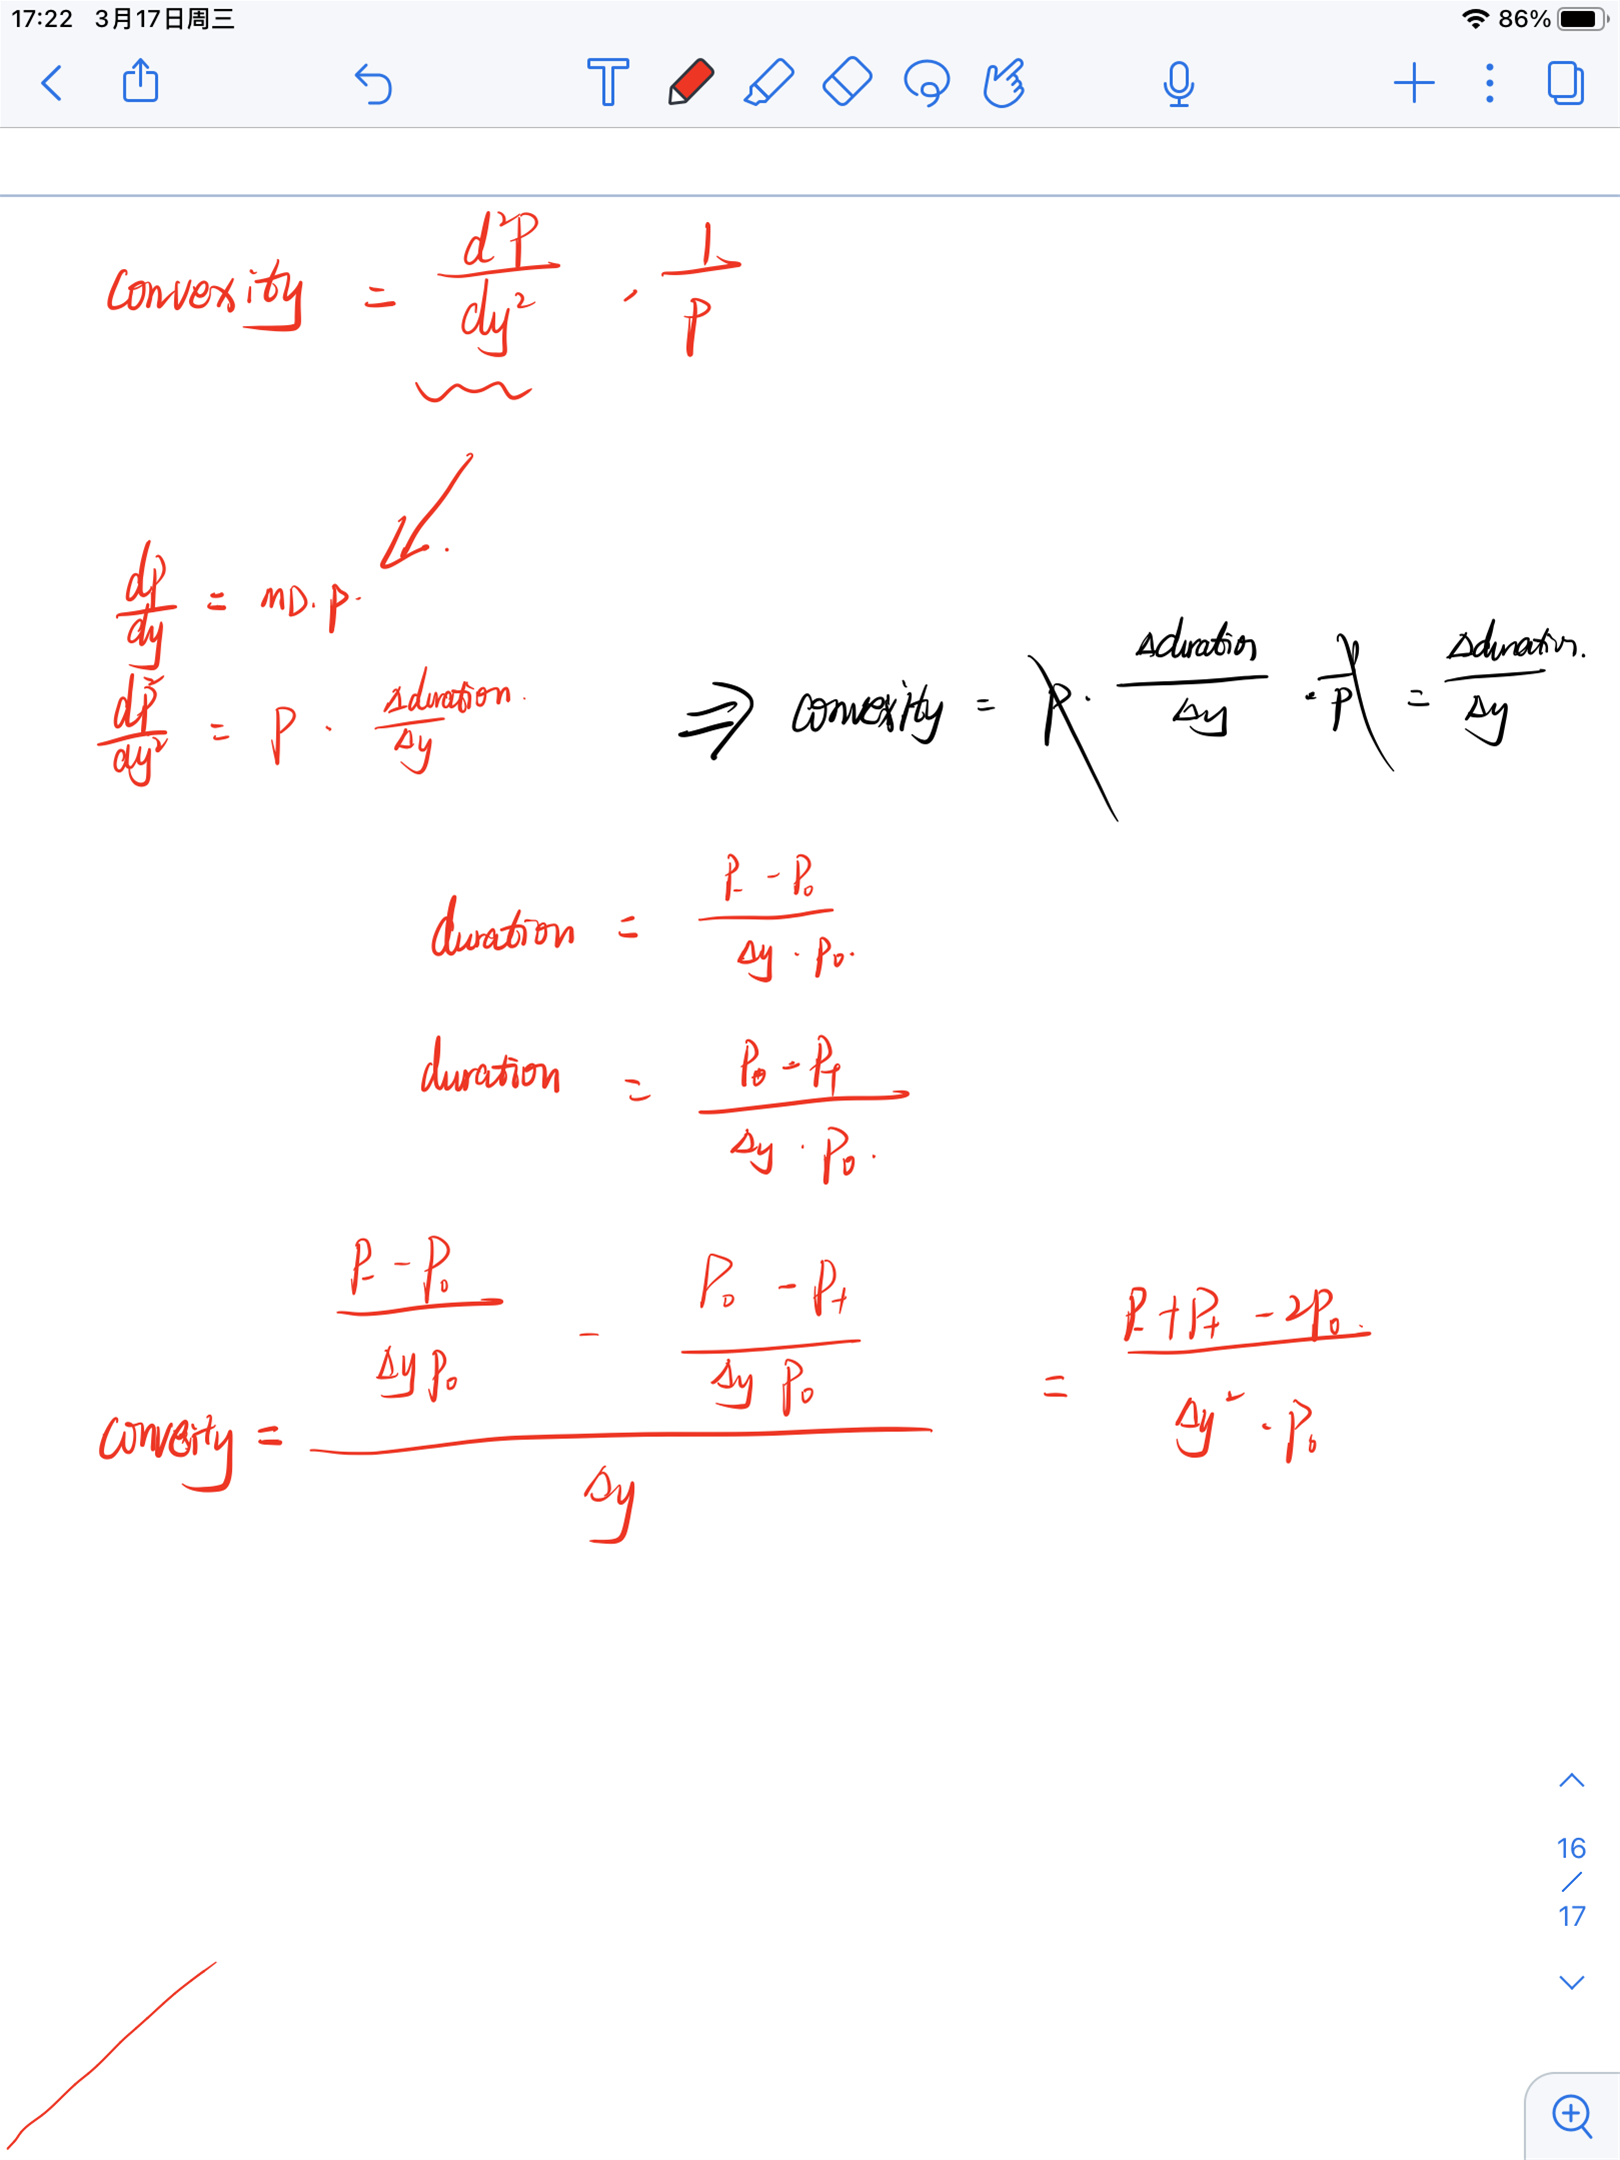 17:22 3月17日周三 86%
T
convexity = d²P/dy² · 1/P
dP/dy = MD · P ·
dP²/dy² = P · Δduration/Δy
⇒ convexity = P · Δduration/Δy · 1/P = Δduration/Δy
duration = (P₋ - P₀)/(Δy · P₀)
duration = (P₀ - P₊)/(Δy · P₀)
convexity = ((P₋ - P₀)/(Δy P₀) - (P₀ - P₊)/(Δy P₀))/Δy = (P₋ + P₊ - 2P₀)/(Δy² · P₀)
16
/
17